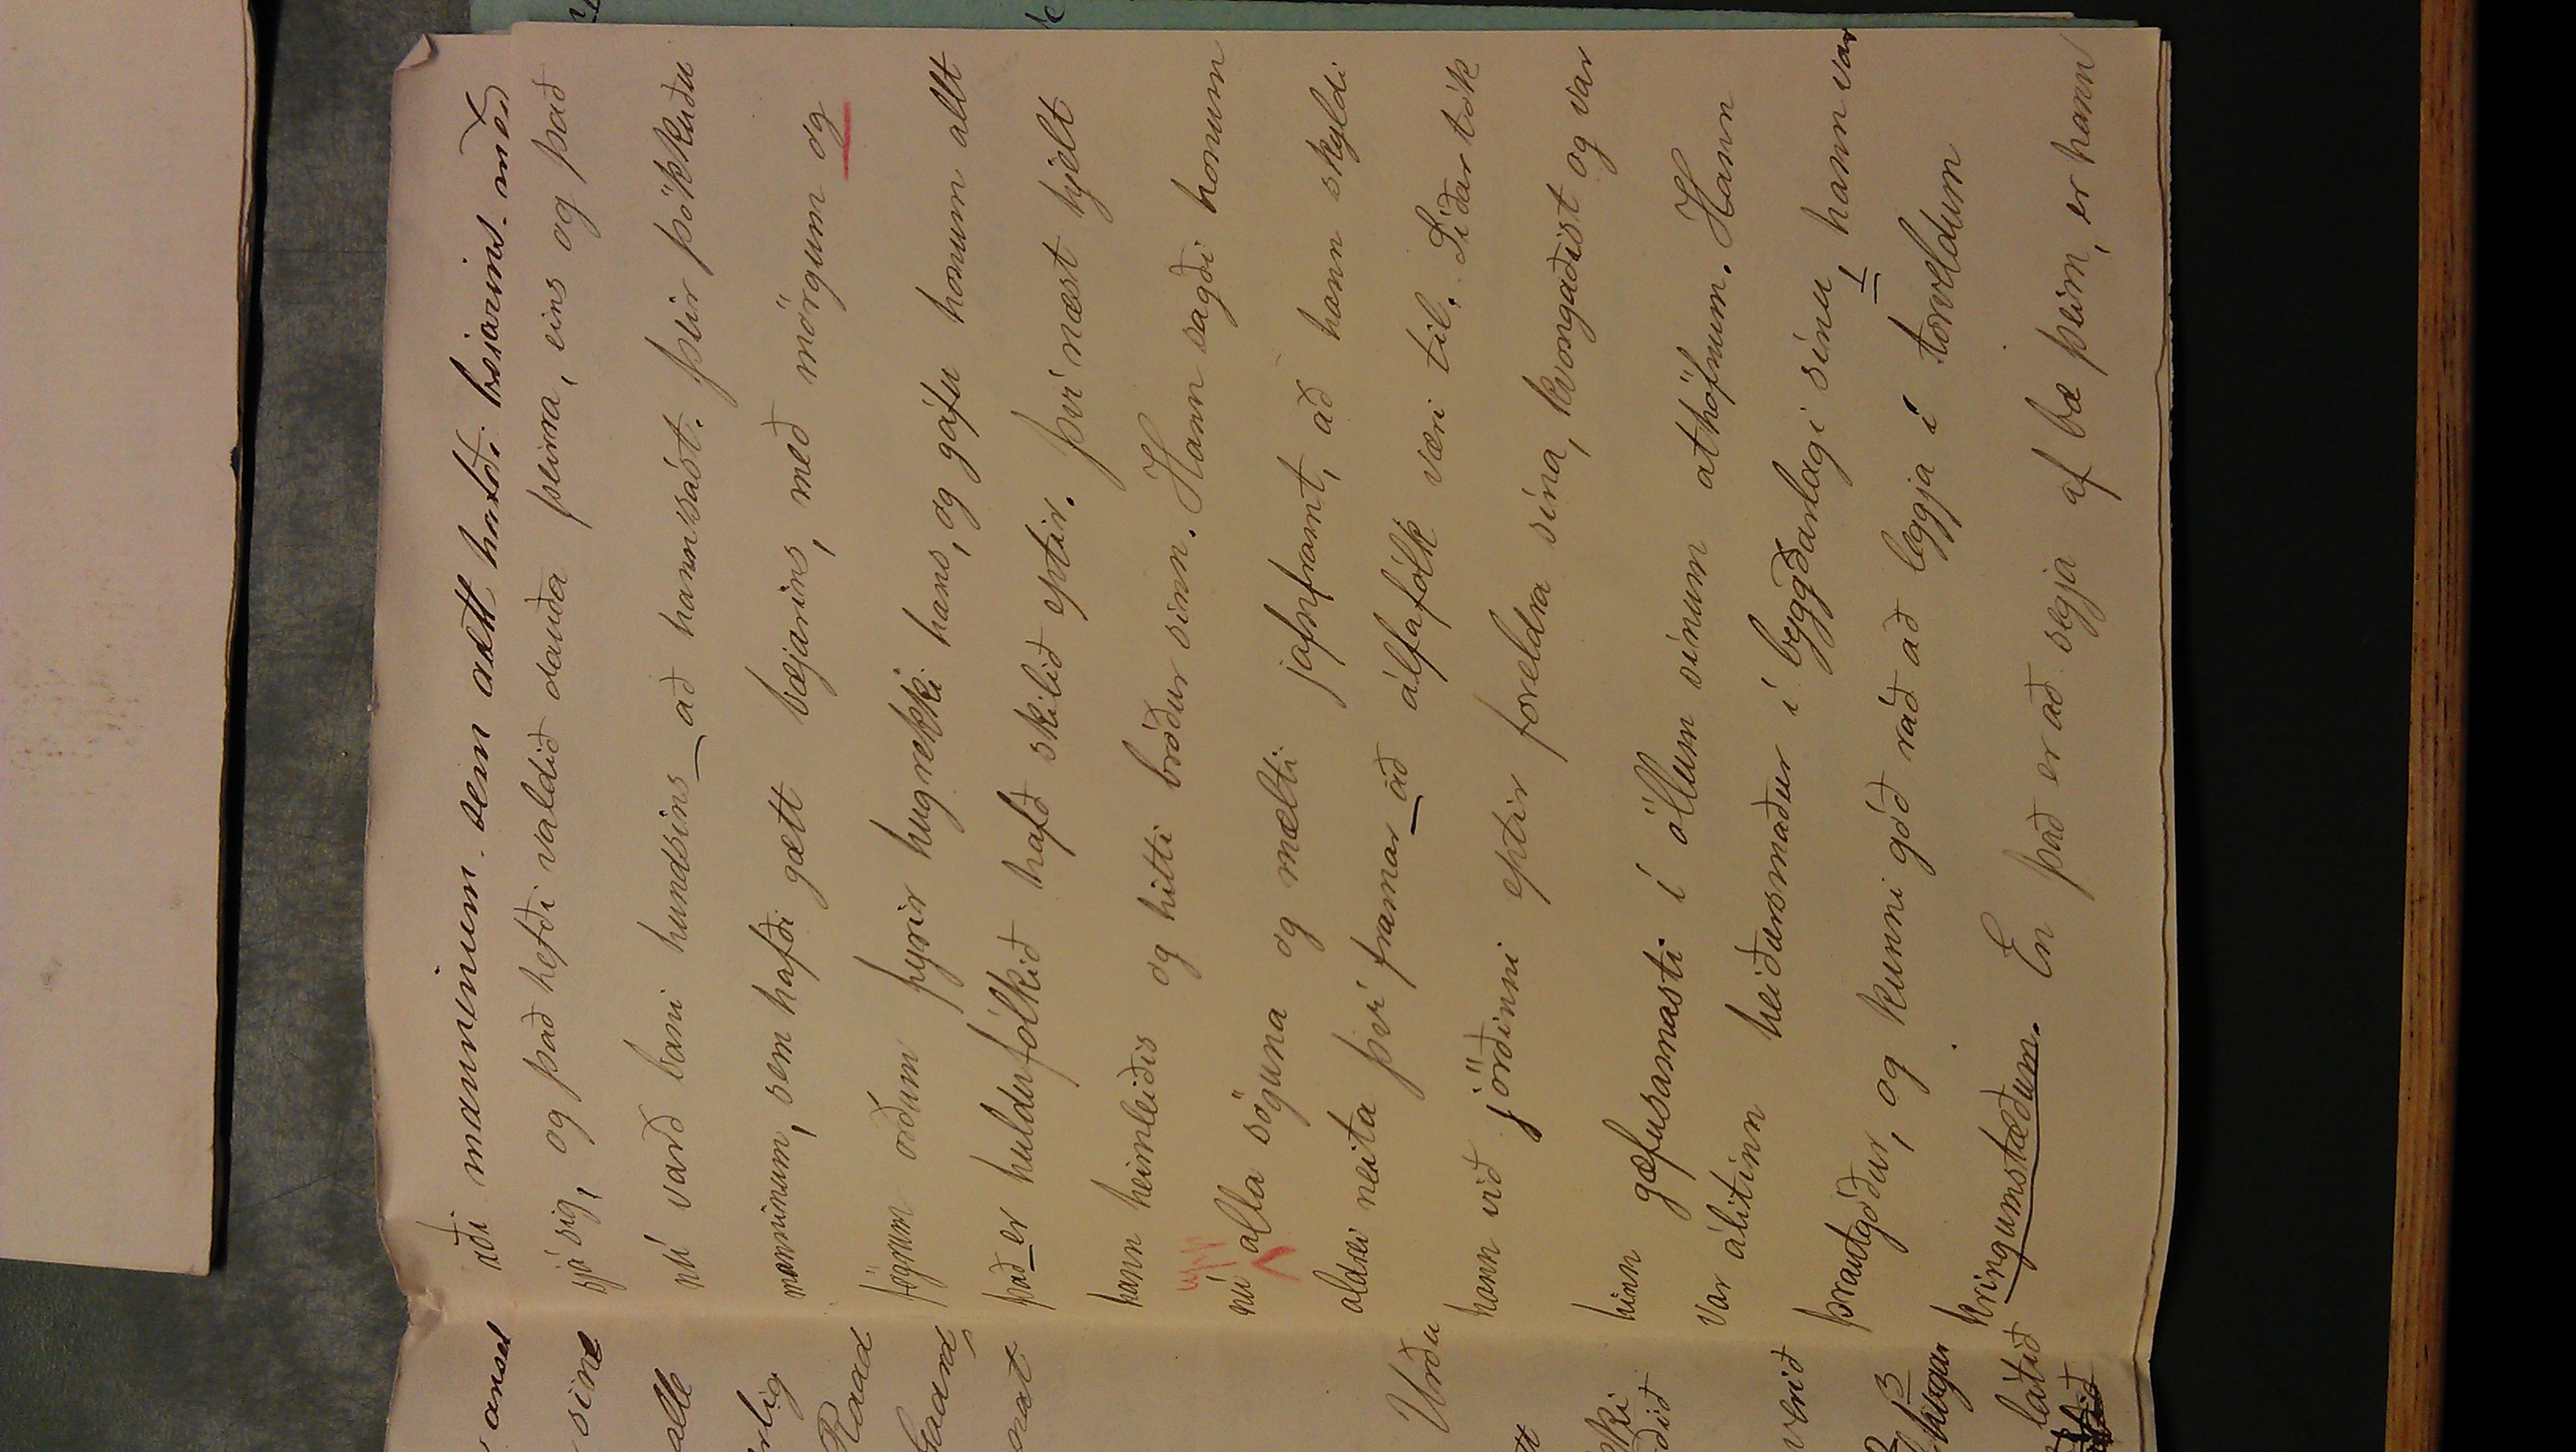 aði manninum sem átt hafði bæjarins með
sjá sig, og það hefði valdið dauða þeirra, eins og það
nú varð bani hundsins að hann sást. Þeir þökkuðu
manninum, sem hafði gætt bæjarins, með mörgum og
fögrum orðum fyrir hugrekki hans, og gáfu honum allt
það er huldufólkið hafð skilið eptir. Því næst hjelt
hann heimleiðis og hitti bróður sinn. Hann sagði honum
nú alla söguna og mælti jafnframt, að hann skyldi
aldrei neita því framar að álfafólk væri til. Síðar tók
hann við jörðinni eptir foreldra sína, kvongaðist og var
hinn gæfusamasti í öllum sínum athöfnum. Hann
var álitinn heiðursmaður í byggðarlagi sínu, hann var
þrautgóður, og kunni góð ráð að leggja í torveldum
kringumstæðum. En það er að segja af bæ þeim, er hann
ansel
sine
alle
rlig
Raad
Gaard,
mat
Urðu
ekki
ðið
verið
3
látið